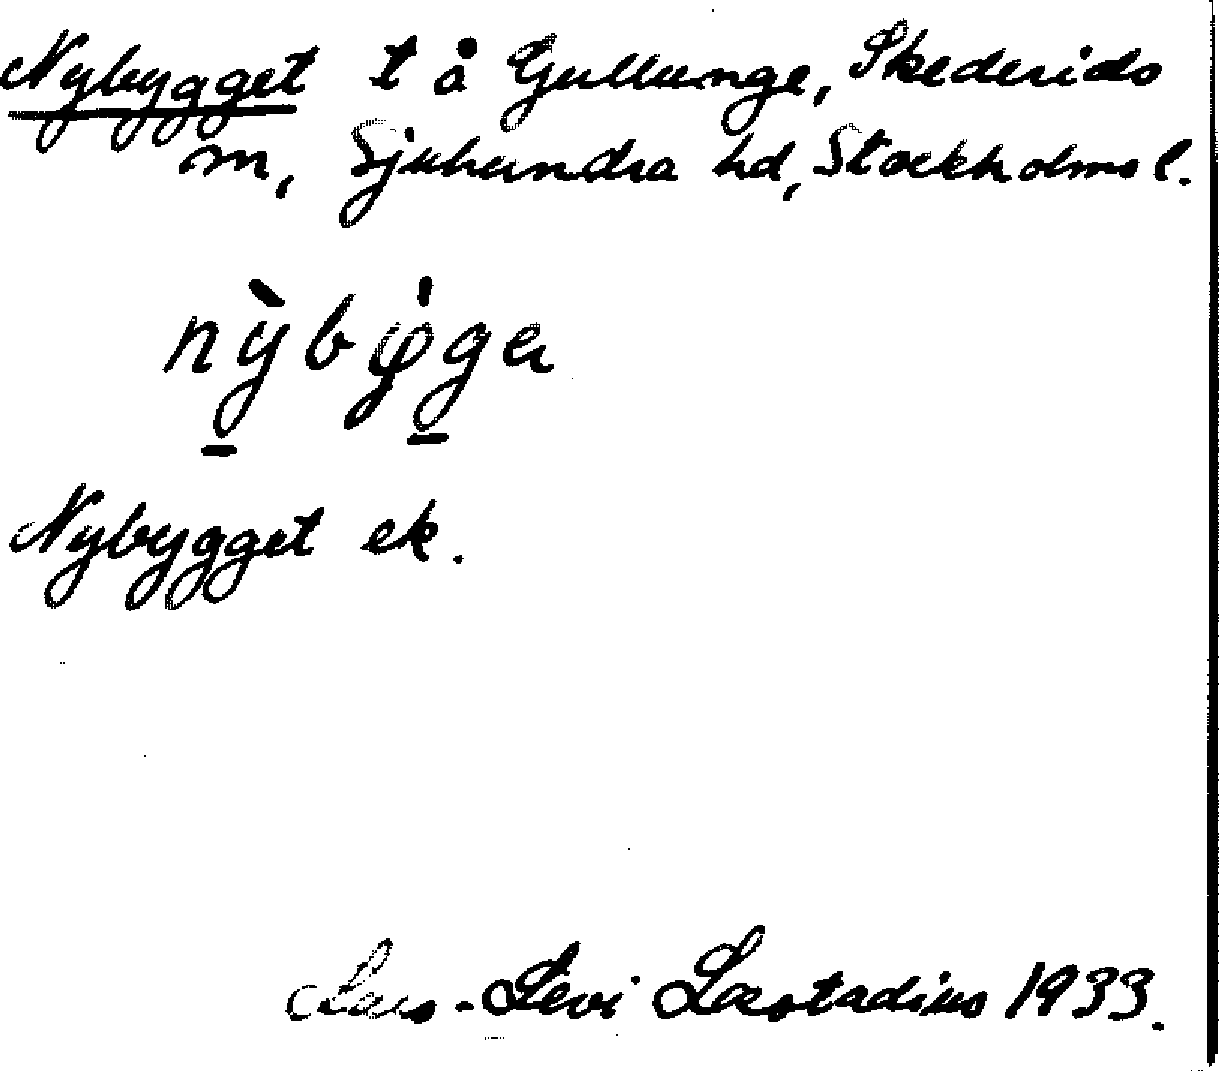 Nybygget t å Gullunge, Skederids
m, Sjuhundra hd, Stockholms l.
nỳby̍ga
Nybygget ek.
Lars-Levi Læstadius 1933.